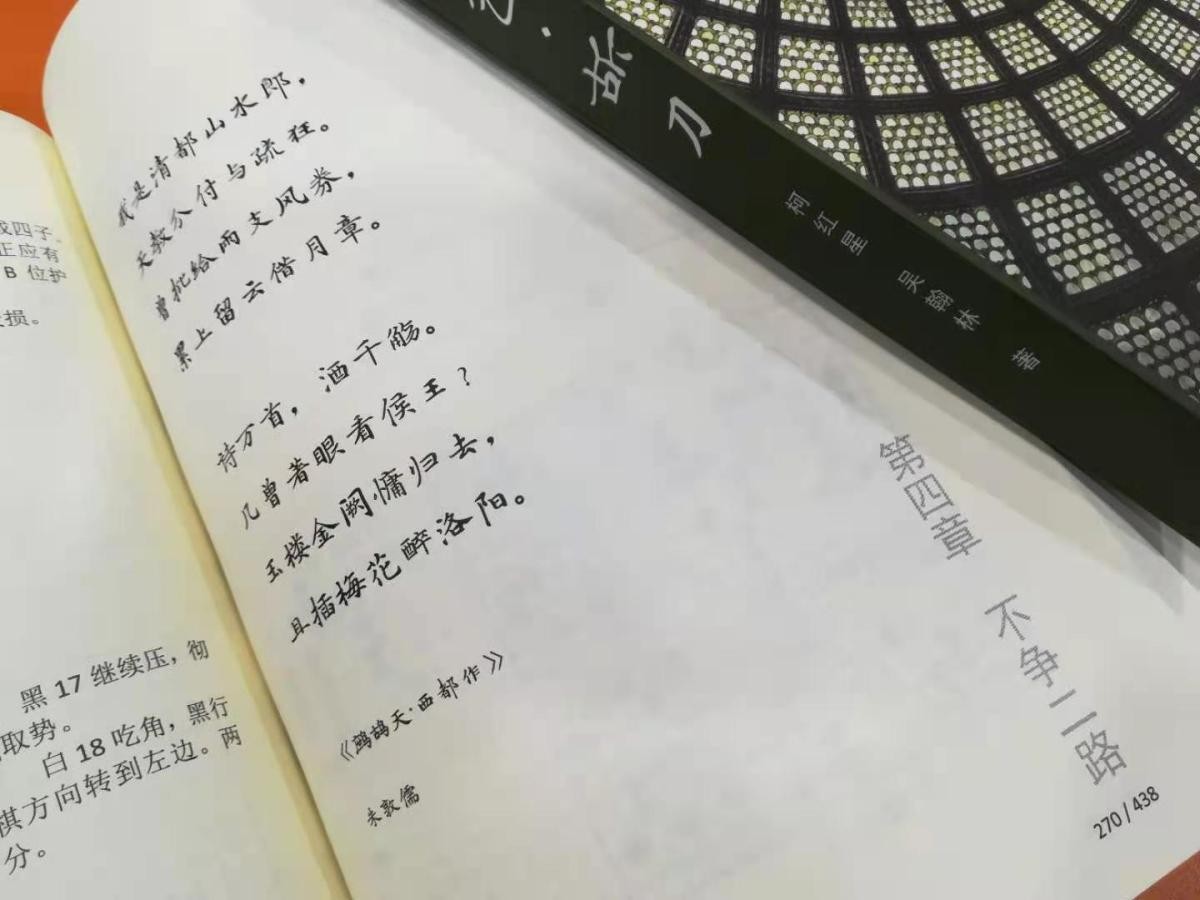 四子。
正应有
B 位护
损。
黑 17 继续压，彻
取势。
白 18 吃角，黑行
棋方向转到左边。两
分。
我是清都山水郎，
天教分付与疏狂。
曾批给雨支风券，
累上留云借月章。
诗万首，酒千觞。
几曾着眼看侯王？
玉楼金阙慵归去，
且插梅花醉洛阳。
《鹧鸪天·西都作》
朱敦儒
第四章 不争二路
270 / 438
·故刀 柯红星 吴翰林 著